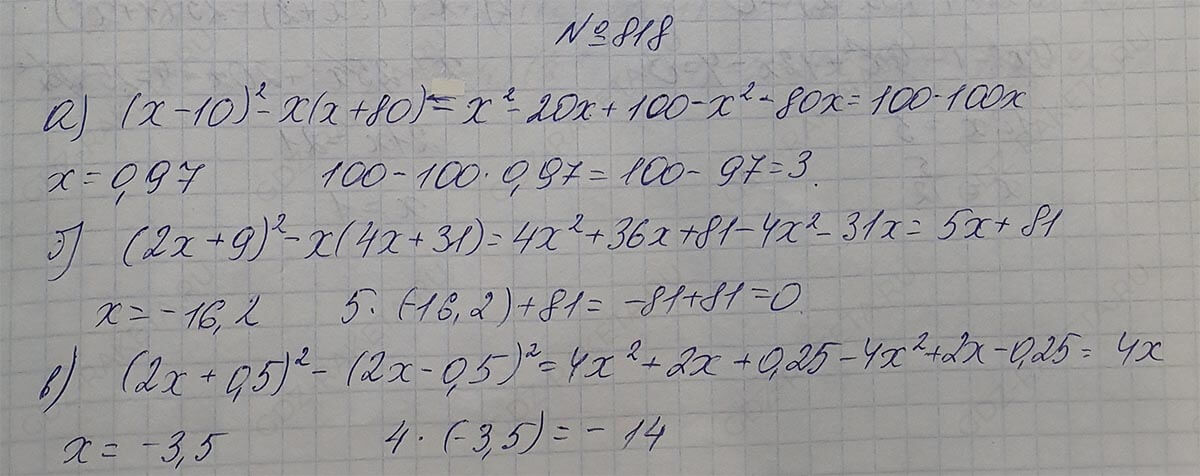 №818
а) (x-10)²-x(x+80)=x²-20x+100-x²-80x=100-100x
x=0,97 100-100·0,97=100-97=3.
б) (2x+9)²-x(4x+31)=4x²+36x+81-4x²-31x=5x+81
x=-16,2 5·(-16,2)+81=-81+81=0.
в) (2x+0,5)²-(2x-0,5)²=4x²+2x+0,25-4x²+2x-0,25=4x
x=-3,5 4·(-3,5)=-14